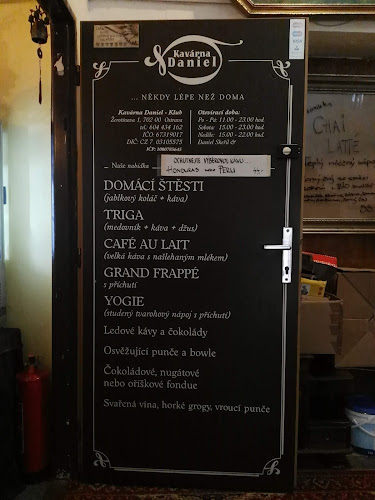 Kavárna
Daniel
... NĚKDY LÉPE NEŽ DOMA
Kavárna Daniel - Klub
Žerotínova 1, 702 00 Ostrava
tel. 604 434 162
IČO: 67319017
Otevírací doba:
Po - Pá: 11.00 - 23.00 hod.
Sobota: 15.00 - 23.00 hod.
Neděle: 15.00 - 22.00 hod.
Naše nabídka
OCHUTNEJTE VÝBĚROVOU KÁVU...
HONDURAS NEBO PERU
DOMÁCÍ ŠTĚSTÍ
(jablkový koláč + káva)
TRIGA
(medovník + káva + džus)
CAFÉ AU LAIT
(velká káva s našlehaným mlékem)
GRAND FRAPPÉ
s příchutí
YOGIE
(studený tvarohový nápoj s příchutí)
Ledové kávy a čokolády
Osvěžující punče a bowle
Čokoládové, nugátové
nebo oříškové fondue
Svařená vína, horké grogy, vroucí punče
CHAI
LATTE